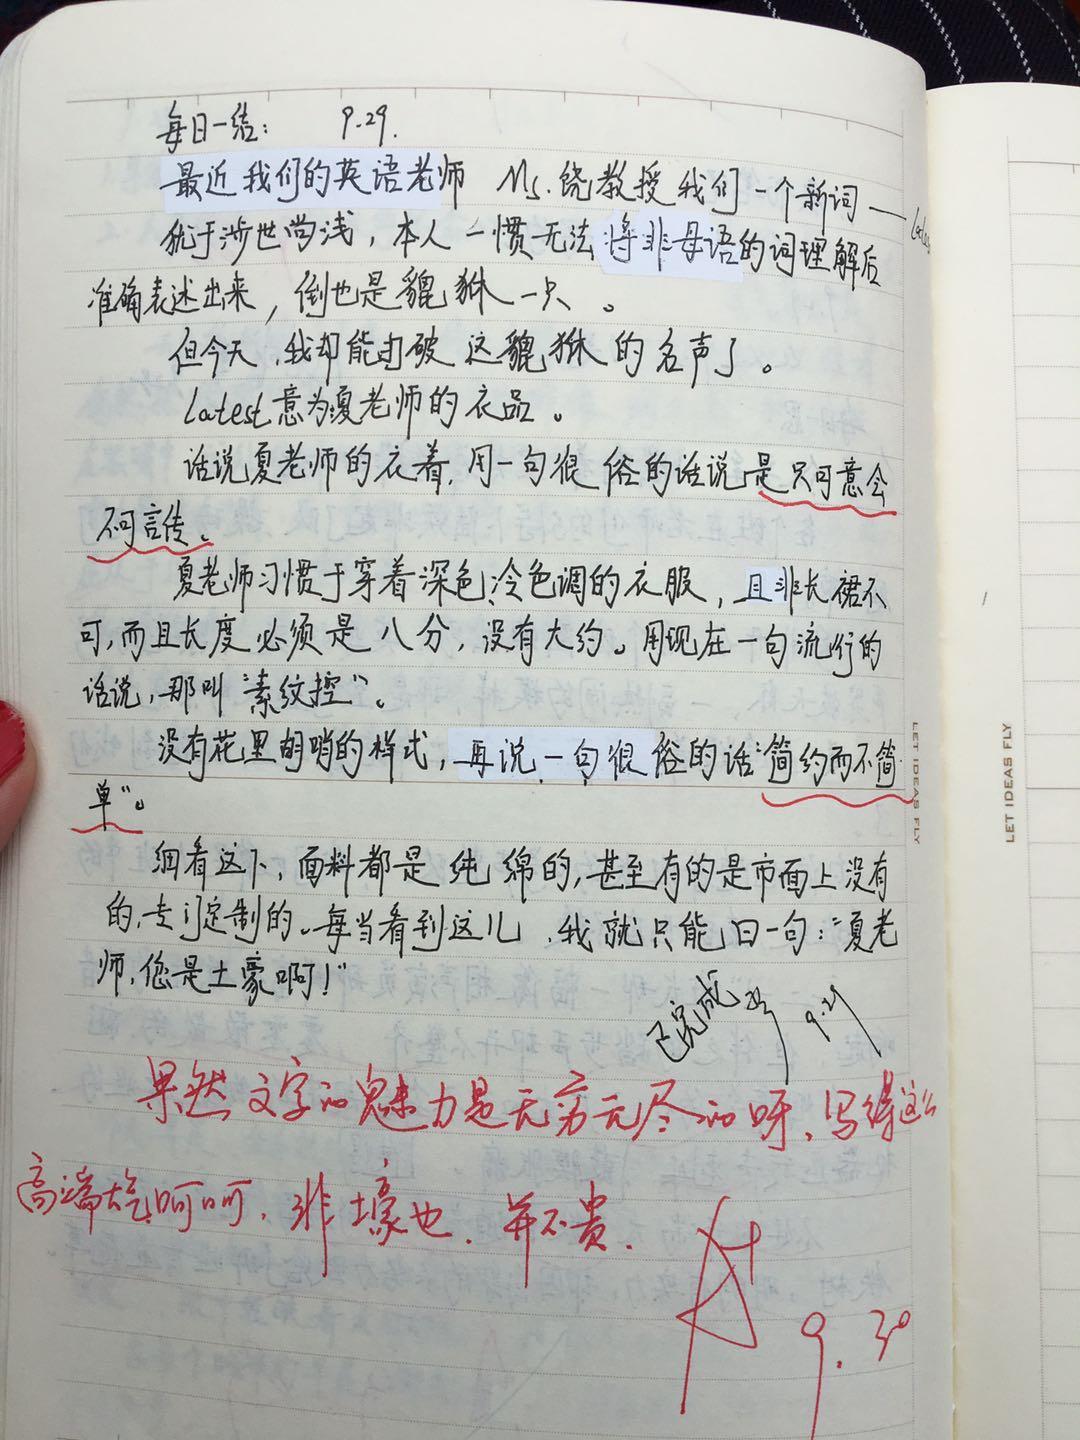 每日一结: 9.29.
最近我们的英语老师 Ms.饶教授我们一个新词——
犹于涉世尚浅，本人一惯无法将非母语的词理解后
准确表述出来，倒也是貔貅一只。
但今天，我却能击破这貔貅的名声了。
latest意为夏老师的衣品。
话说夏老师的衣着，用一句很俗的话说是只可意会
不可言传。
夏老师习惯于穿着深色、冷色调的衣服，且非长裙不
可，而且长度必须是八分，没有大约。用现在一句流行的
话说，那叫"素纹控"。
没有花里胡哨的样式，再说一句很俗的话："简约而不简
单"。
细看这下，面料都是纯绵的，甚至有的是市面上没有
的，专门定制的。每当看到这儿，我就只能曰一句："夏老
师，您是土豪啊！"
已完成 9.29
果然文字的魅力是无穷无尽的呀，写得这么
高端大气，呵呵，非壕也，并不贵.
A+
9.30
LET IDEAS FLY
LET IDEAS FLY